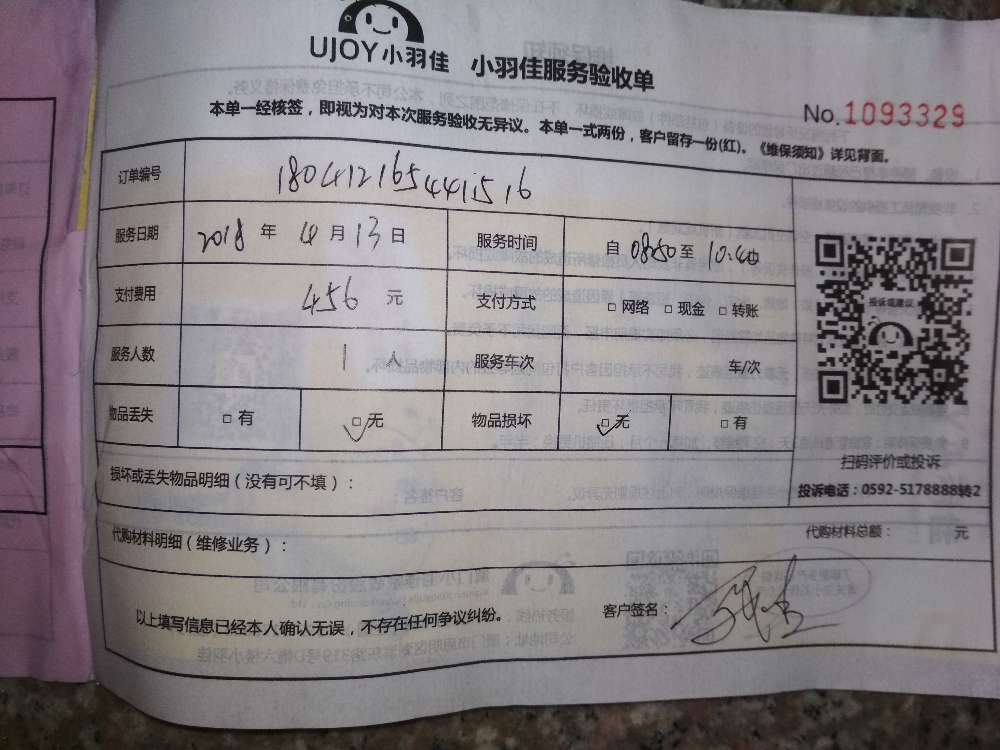 UJOY小羽佳 小羽佳服务验收单
No.1093329
本单一经核签，即视为对本次服务验收无异议。本单一式两份，客户留存一份(红)。《维保须知》详见背面。
订单编号 1804121654441516
服务日期 2018 年 4 月 13 日 服务时间 自 08:50 至 10:40
支付费用 456 元 支付方式 □ 网络 □ 现金 □ 转账
服务人数 1 人 服务车次 车/次
物品丢失 □ 有 □ 无 物品损坏 □ 无 □ 有
投诉或建议
扫码评价或投诉
投诉电话：0592-5178888转2
损坏或丢失物品明细（没有可不填）：
代购材料明细（维修业务）： 代购材料总额： 元
以上填写信息已经本人确认无误，不存在任何争议纠纷。 客户签名：